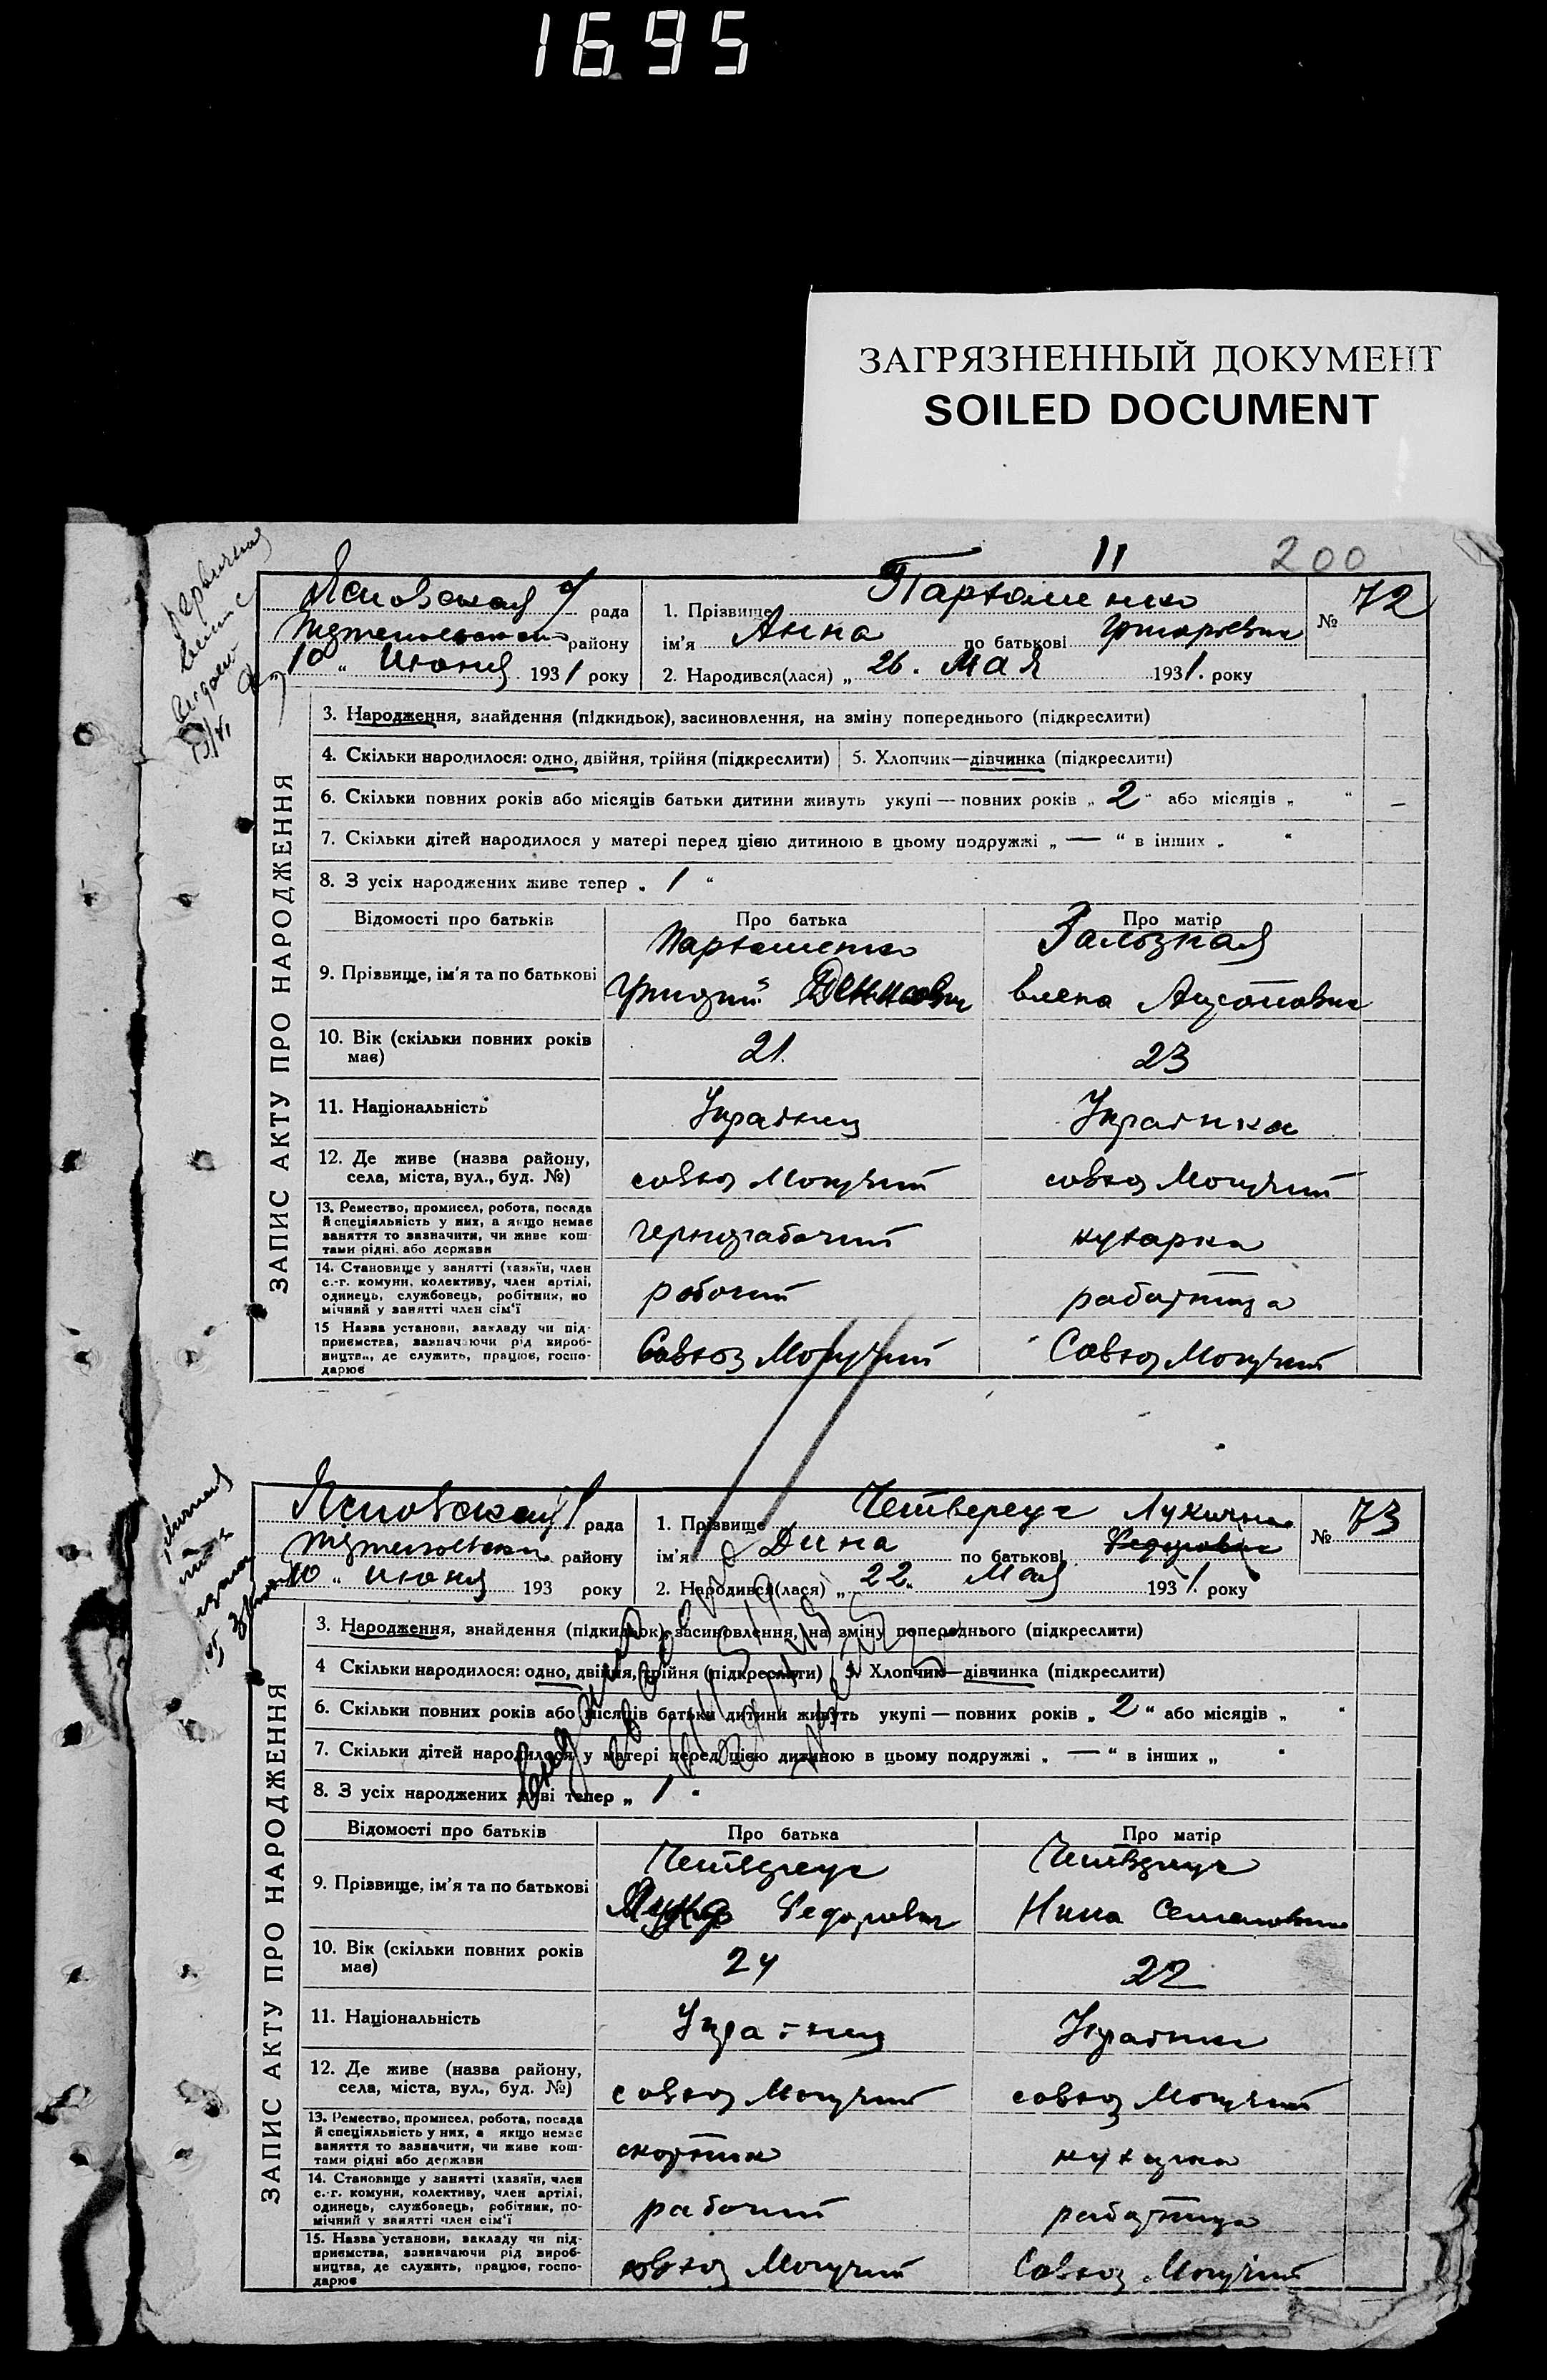 1695
ЗАГРЯЗНЕННЫЙ ДОКУМЕНТ
SOILED DOCUMENT
11
200
рада
району
10 " Июня 1931 року
1. Прізвище Пархоменко
ім'я Анна по батькові Григорьевна
2. Народився(лася) „ 26. Мая 1931. року
№ 72
ЗАПИС АКТУ ПРО НАРОДЖЕННЯ
3. Народження, знайдення (підкидьок), засиновлення, на зміну попереднього (підкреслити)
4. Скільки народилося: одно, двійня, трійня (підкреслити) 5. Хлопчик—дівчинка (підкреслити)
6. Скільки повних років або місяців батьки дитини живуть укупі — повних років „ 2 “ або місяців „ “
7. Скільки дітей народилося у матері перед цією дитиною в цьому подружжі „ — “ в інших „ “
8. З усіх народжених живе тепер „ 1 “
Відомості про батьків Про батька Про матір
9. Прізвище, ім'я та по батькові
Пархоменко
Григорий Денисович
Елена
10. Вік (скільки повних років має) 21. 23
11. Національність Украінец Украінка
12. Де живе (назва району, села, міста, вул., буд. №) совхоз Могучий совхоз Могучий
13. Ремество, промисел, робота, посада й спеціяльність у них, а якщо немає заняття то зазначити, чи живе коштами рідні або держави
чернорабочий кухарка
14. Становище у занятті (хазяїн, член с.-г. комуни, колективу, член артілі, одинець, службовець, робітник, помічний у занятті член сім'ї
робочий работница
15 Назва установи, закладу чи підприємства, зазначаючи рід виробництва, де служить, працює, господарює
Совхоз Могучий Совхоз Могучий
рада
району
10 " июня 193 року
1. Прізвище Четверус Лукична
ім'я Дина по батькові Федоровна
2. Народився(лася) „ 22 „ Мая 1931. року
№ 73
ЗАПИС АКТУ ПРО НАРОДЖЕННЯ
3. Народження, знайдення (підкидьок), засиновлення, на зміну попереднього (підкреслити)
4 Скільки народилося: одно, двійня, трійня (підкреслити) 5. Хлопчик—дівчинка (підкреслити)
6. Скільки повних років або місяців батьки дитини живуть укупі — повних років „ 2 “ або місяців „ “
7. Скільки дітей народилося у матері перед цією дитиною в цьому подружжі „ — “ в інших „ “
8. З усіх народжених живі тепер „ 1 “
Відомості про батьків Про батька Про матір
9. Прізвище, ім'я та по батькові
Четверус Четверус
Федорович Нина Семеновна
10. Вік (скільки повних років має) 24 22
11. Національність Украінец Украінка
12. Де живе (назва району, села, міста, вул., буд. №) совхоз Могучий совхоз Могучий
13. Ремество, промисел, робота, посада й спеціяльність у них, а якщо немає заняття то зазначити, чи живе коштами рідні або держави
скотник кухарка
14. Становище у занятті (хазяїн, член с.-г. комуни, колективу, член артілі, одинець, службовець, робітник, помічний у занятті член сім'ї
рабочий работница
15. Назва установи, закладу чи підприємства, зазначаючи рід виробництва, де служить, працює, господарює
совхоз Могучий Совхоз Могучий